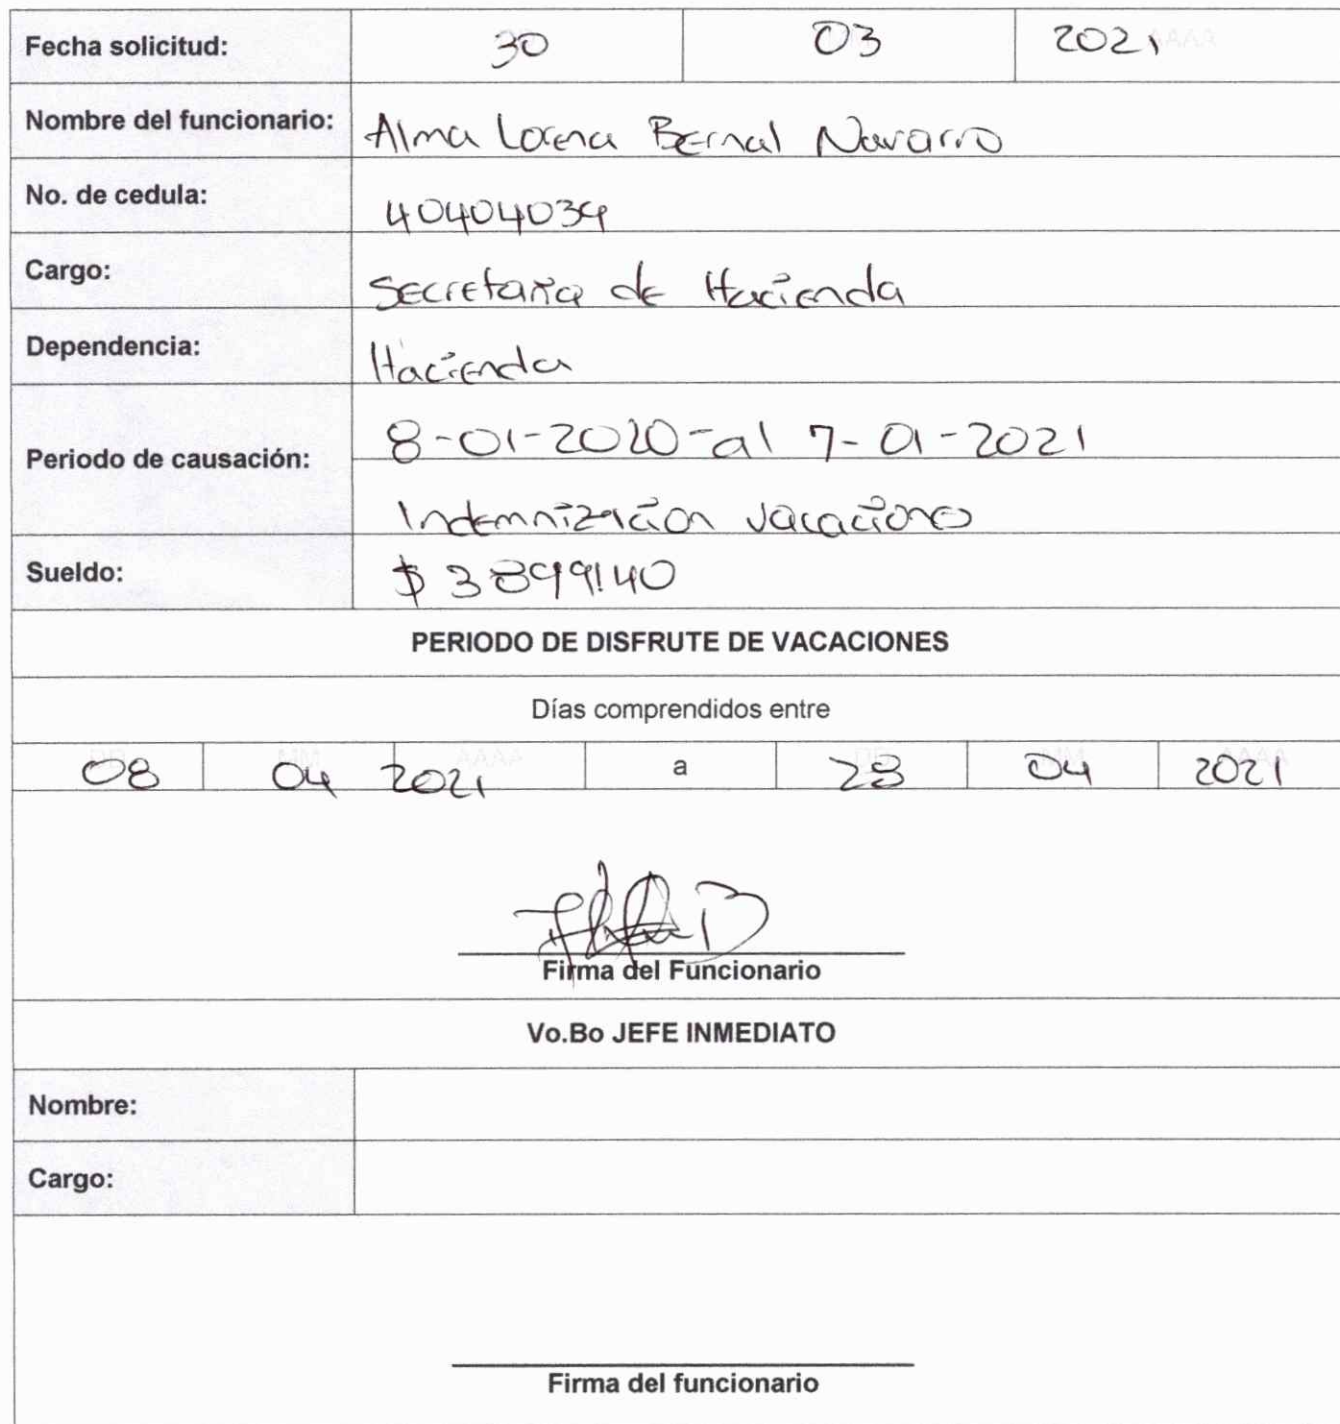 Fecha solicitud: 30 03 2021
Nombre del funcionario: Alma Lorena Bernal Navarro
No. de cedula: 40404039
Cargo: Secretaria de Hacienda
Dependencia: Hacienda
Periodo de causación: 8-01-2020-al 7-01-2021
Indemnización vacaciones
Sueldo: $ 3899140
PERIODO DE DISFRUTE DE VACACIONES
Días comprendidos entre
08 04 2021 a 28 04 2021
Firma del Funcionario
Vo.Bo JEFE INMEDIATO
Nombre:
Cargo:
Firma del funcionario